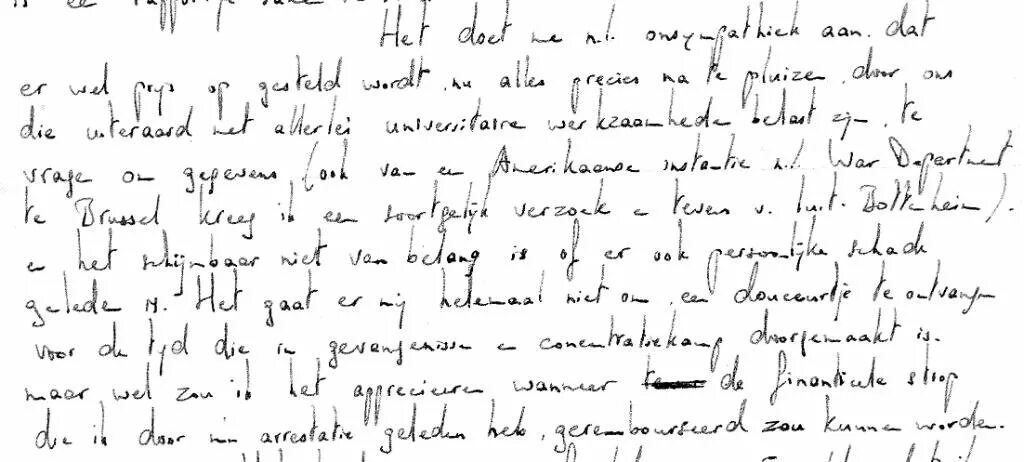 Het doet me n.l. onsympathiek aan, dat
er wel prijs op gesteld wordt, nu alles precies na te pluizen, door ons
die uiteraard met allerlei universitaire werkzaamhede belast zijn, te
vrage om gegevens (ook van een Amerikaanse instantie n.l. War Department
te Brussel kreeg ik een soortgelijk verzoek en tevens v. luit. Bottenheim).
en het schijnbaar niet van belang is of er ook persoonlijke schade
gelede is. Het gaat er mij helemaal niet om, een douceurtje te ontvangen
voor de tijd die in gevangenissen en concentratiekamp doorgemaakt is.
maar wel zou ik het appreciëren wanneer de financiele strop
die ik door mijn arrestatie geleden heb, gerembourseerd zou kunnen worden.